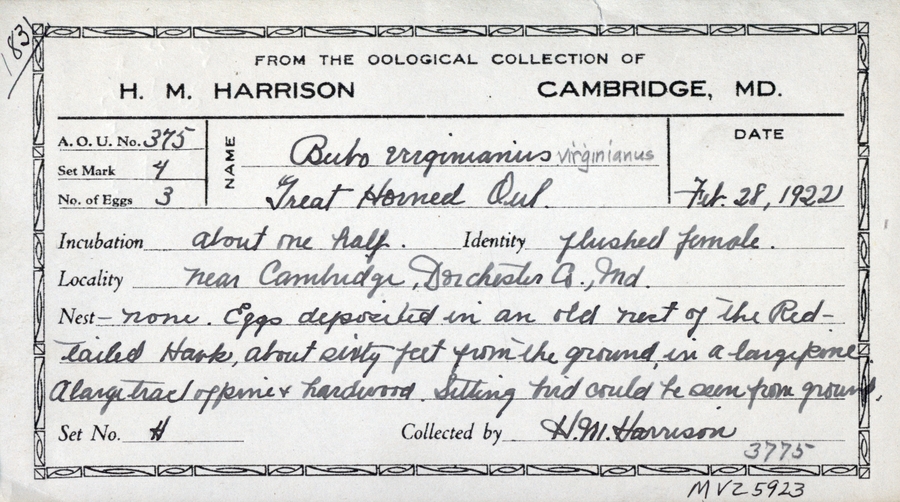 183
FROM THE OOLOGICAL COLLECTION OF
H. M. HARRISON CAMBRIDGE, MD.
A. O. U. No. 375
Set Mark 4
No. of Eggs 3
NAME
Bubo virginianus virginianus
Great Horned Owl.
DATE
Feb. 28, 1922
Incubation about one half. Identity flushed female.
Locality near Cambridge, Dorchester Co., Md.
Nest – none. Eggs deposited in an old nest of the Red-
tailed Hawk, about sixty feet from the ground, in a large pine
A large tract of pine & hardwood. Sitting bird could be seen from ground.
Set No. H Collected by H. M. Harrison
3775
MVZ 5923